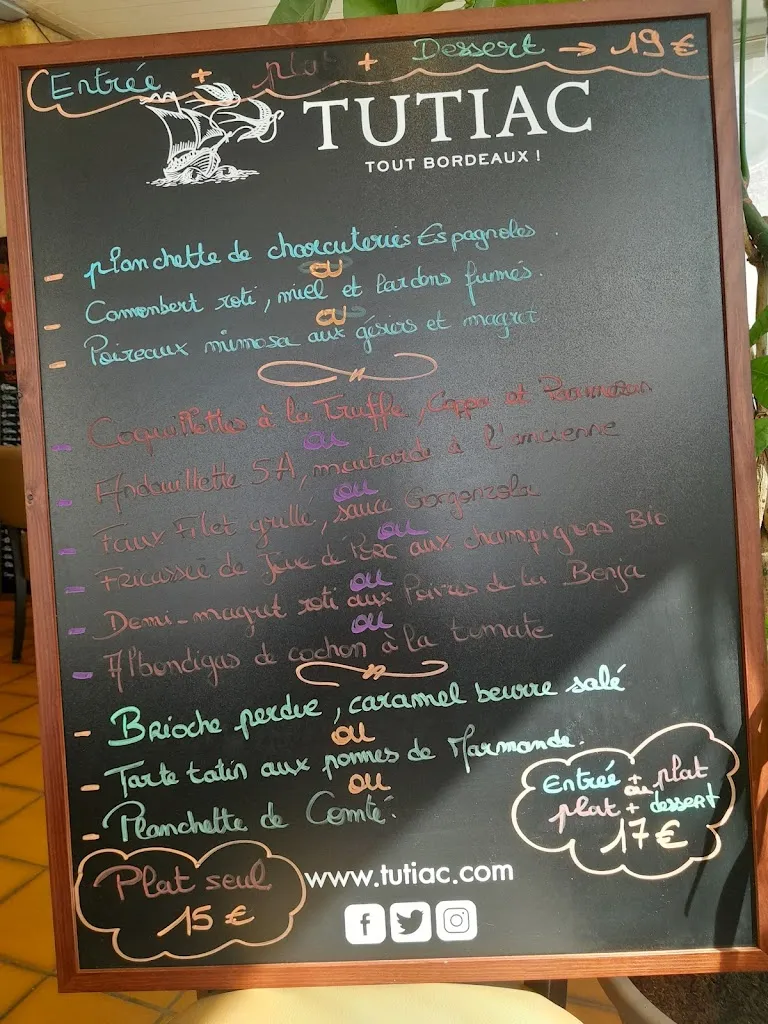 Entrée + plat + Dessert → 19 €
TUTIAC
TOUT BORDEAUX !
- planchette de charcuteries Espagnoles.
ou
- Camembert roti, miel et lardons fumés.
ou
- Poireaux mimosa aux gésiers et magret
- Coquillettes à la Truffe, Coppa et Parmesan
ou
- Andouillette 5A, moutarde à l'ancienne
ou
- Faux Filet grillé, sauce Gorgonzola
ou
- Fricassée de Joue de Porc aux champignons Bio
ou
- Demi-magret roti aux Poivres de la Benja
ou
- Albondigas de cochon à la tomate
- Brioche perdue, caramel beurre salé
ou
- Tarte tatin aux pommes de Marmande.
ou
- Planchette de Comté.
Entrée + plat
ou
plat + dessert
17 €
Plat seul
15 €
www.tutiac.com